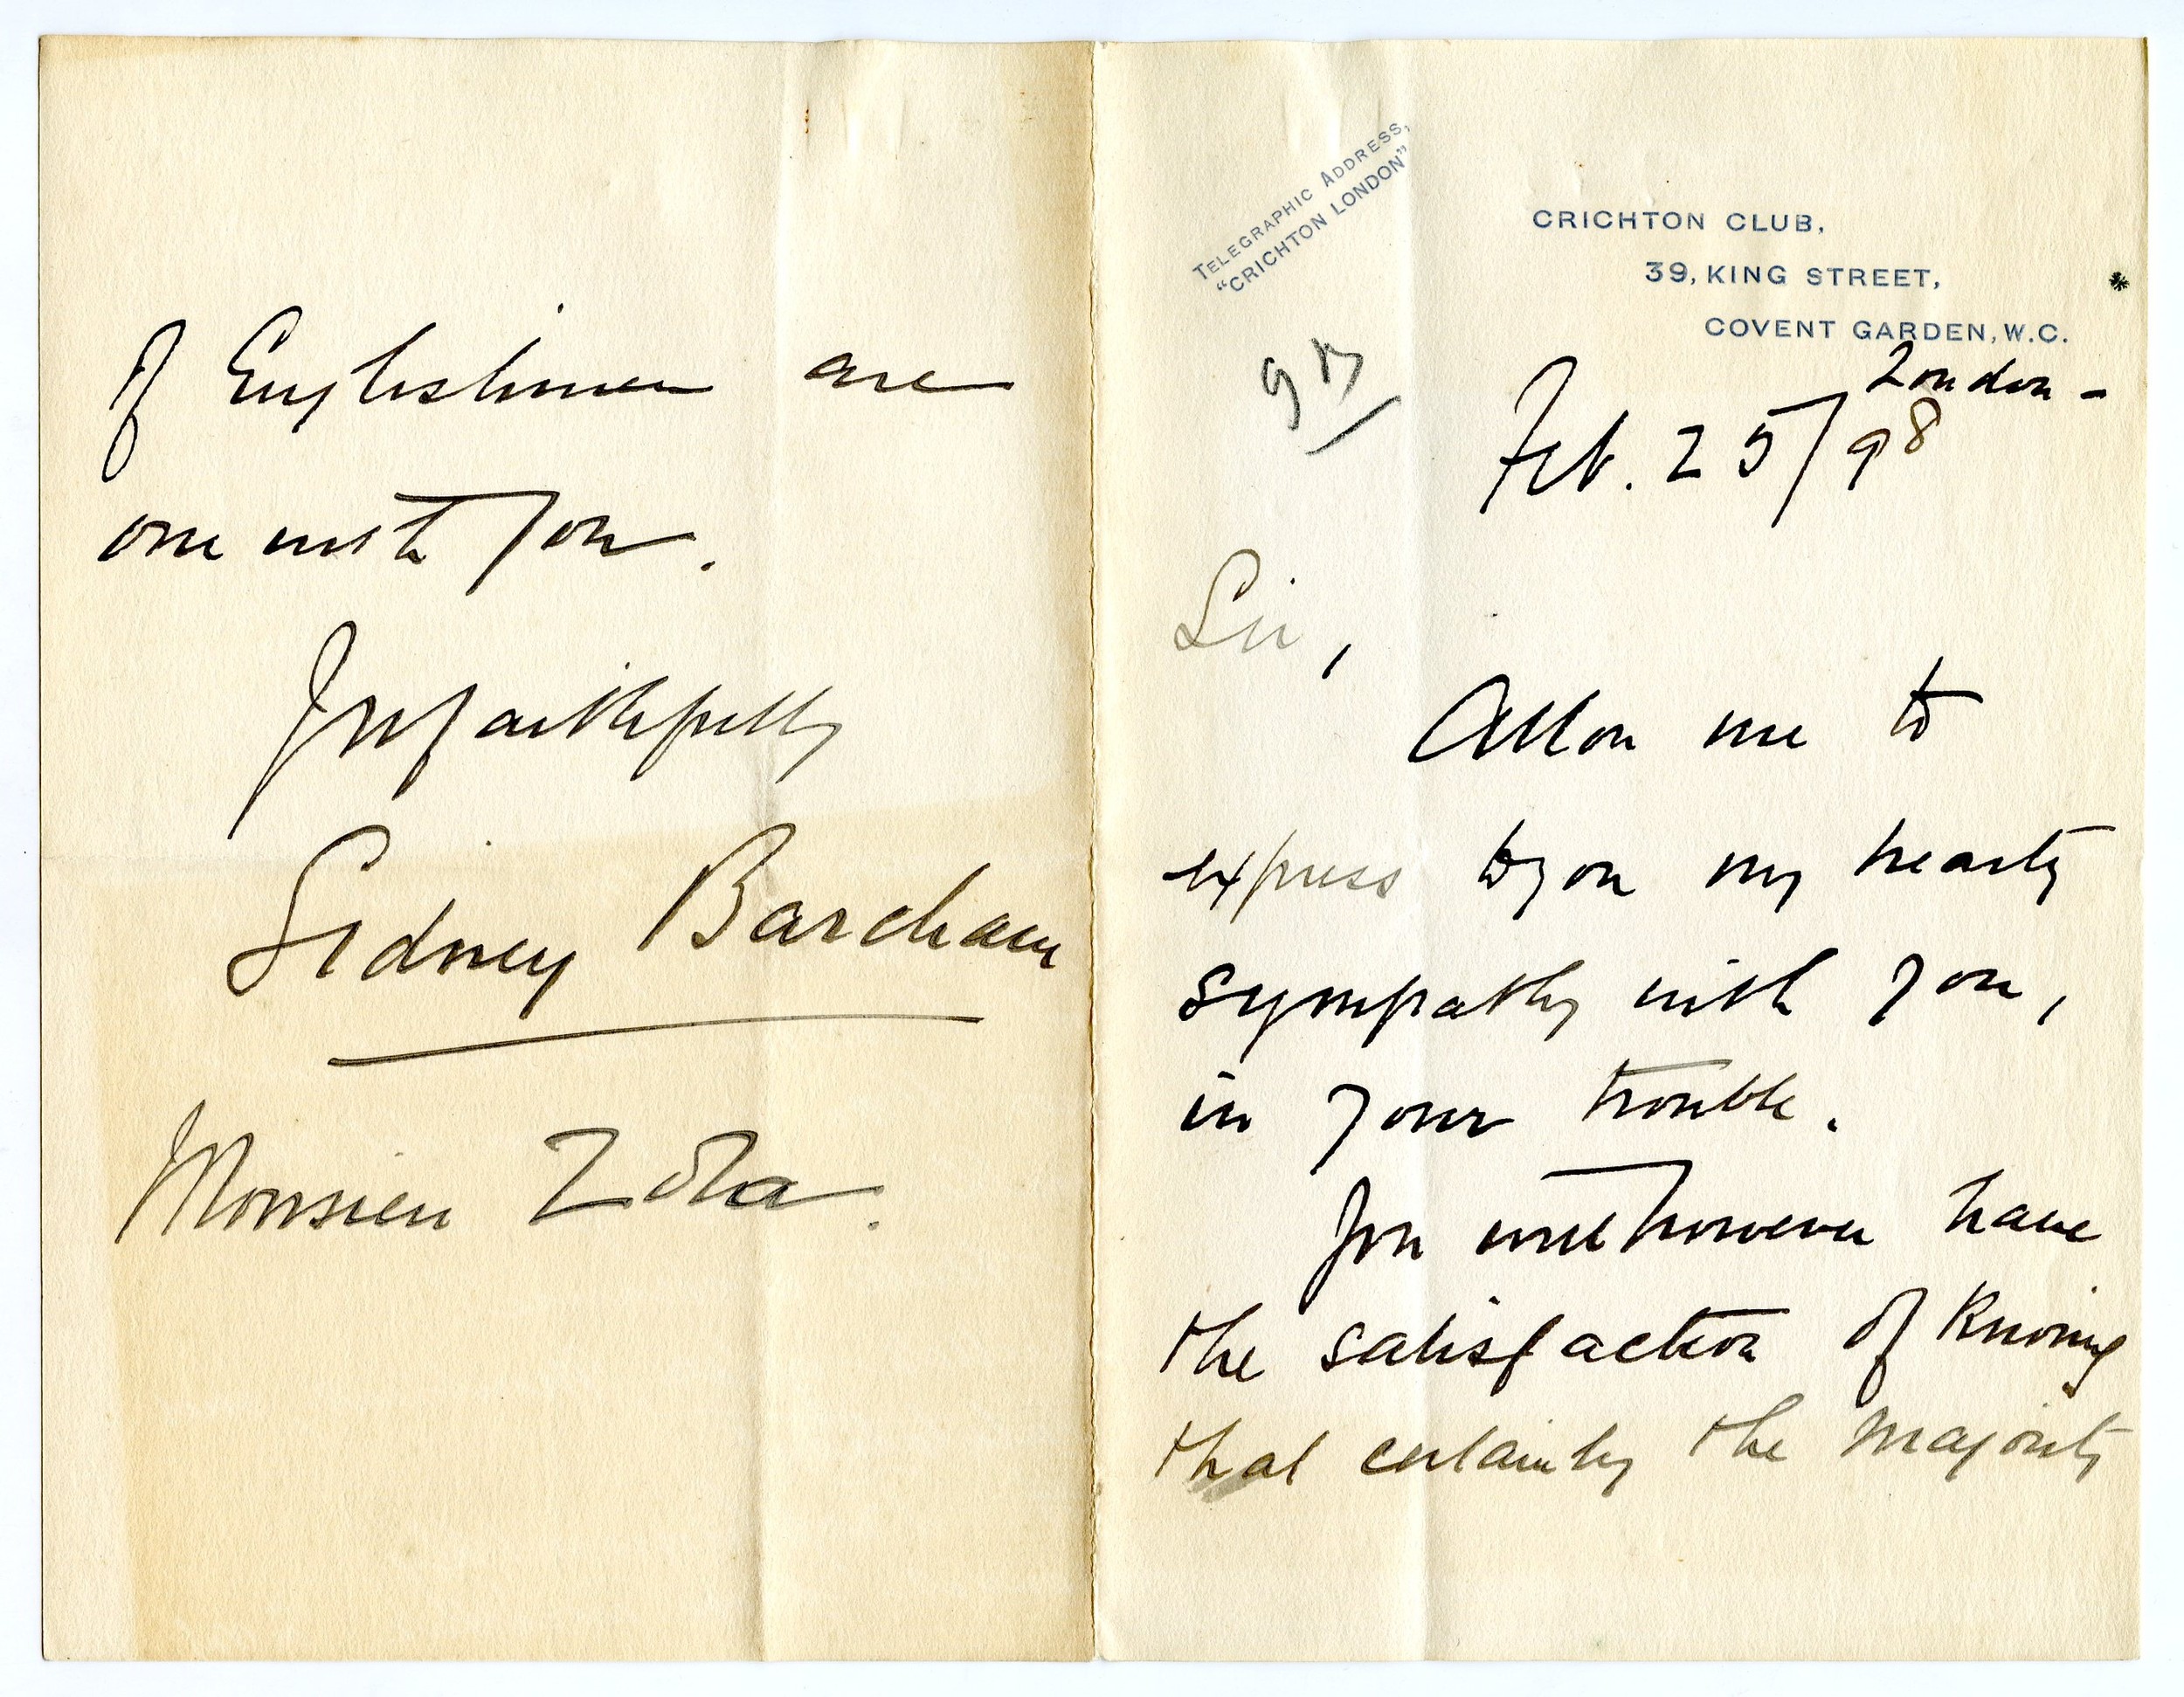 TELEGRAPHIC ADDRESS,
"CRICHTON LONDON"
CRICHTON CLUB,
39, KING STREET,
COVENT GARDEN, W.C.
London -
Feb. 25/98
Sir,
Allow me to
express to you my hearty
sympathy with you,
in your trouble.
You will however have
the satisfaction of knowing
that certainly the majority
of Englishmen are
one with you.
Yrs faithfully
Sidney Barcham
Monsieur Zola.